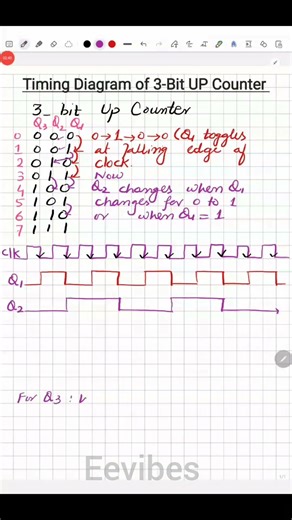 Timing Diagram of 3-Bit UP Counter
3-bit Up Counter
Q3 Q2 Q1
0 0 0 0 0→1→0→0 (Q1 toggles
1 0 0 1 at falling edge of
2 0 1 0 clock.
3 0 1 1 Now
4 1 0 0 Q2 changes when Q1
5 1 0 1 changes for 0 to 1
6 1 1 0 or when Q1 = 1
7 1 1 1
Clk
Q1
Q2
For Q3 :
Eevibes